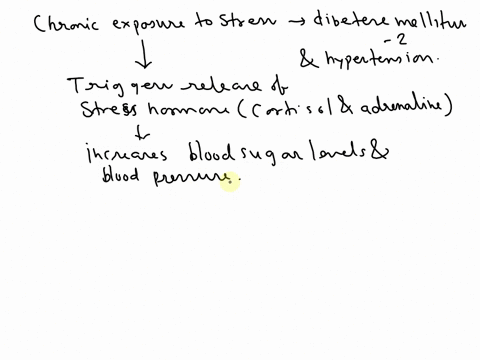 Chronic exposure to stress → dibetere mellitur
-2
& hypertension.
Triggers release of
Stress hormone (Cortisol & adrenaline)
increases blood sugar levels &
blood pressure.